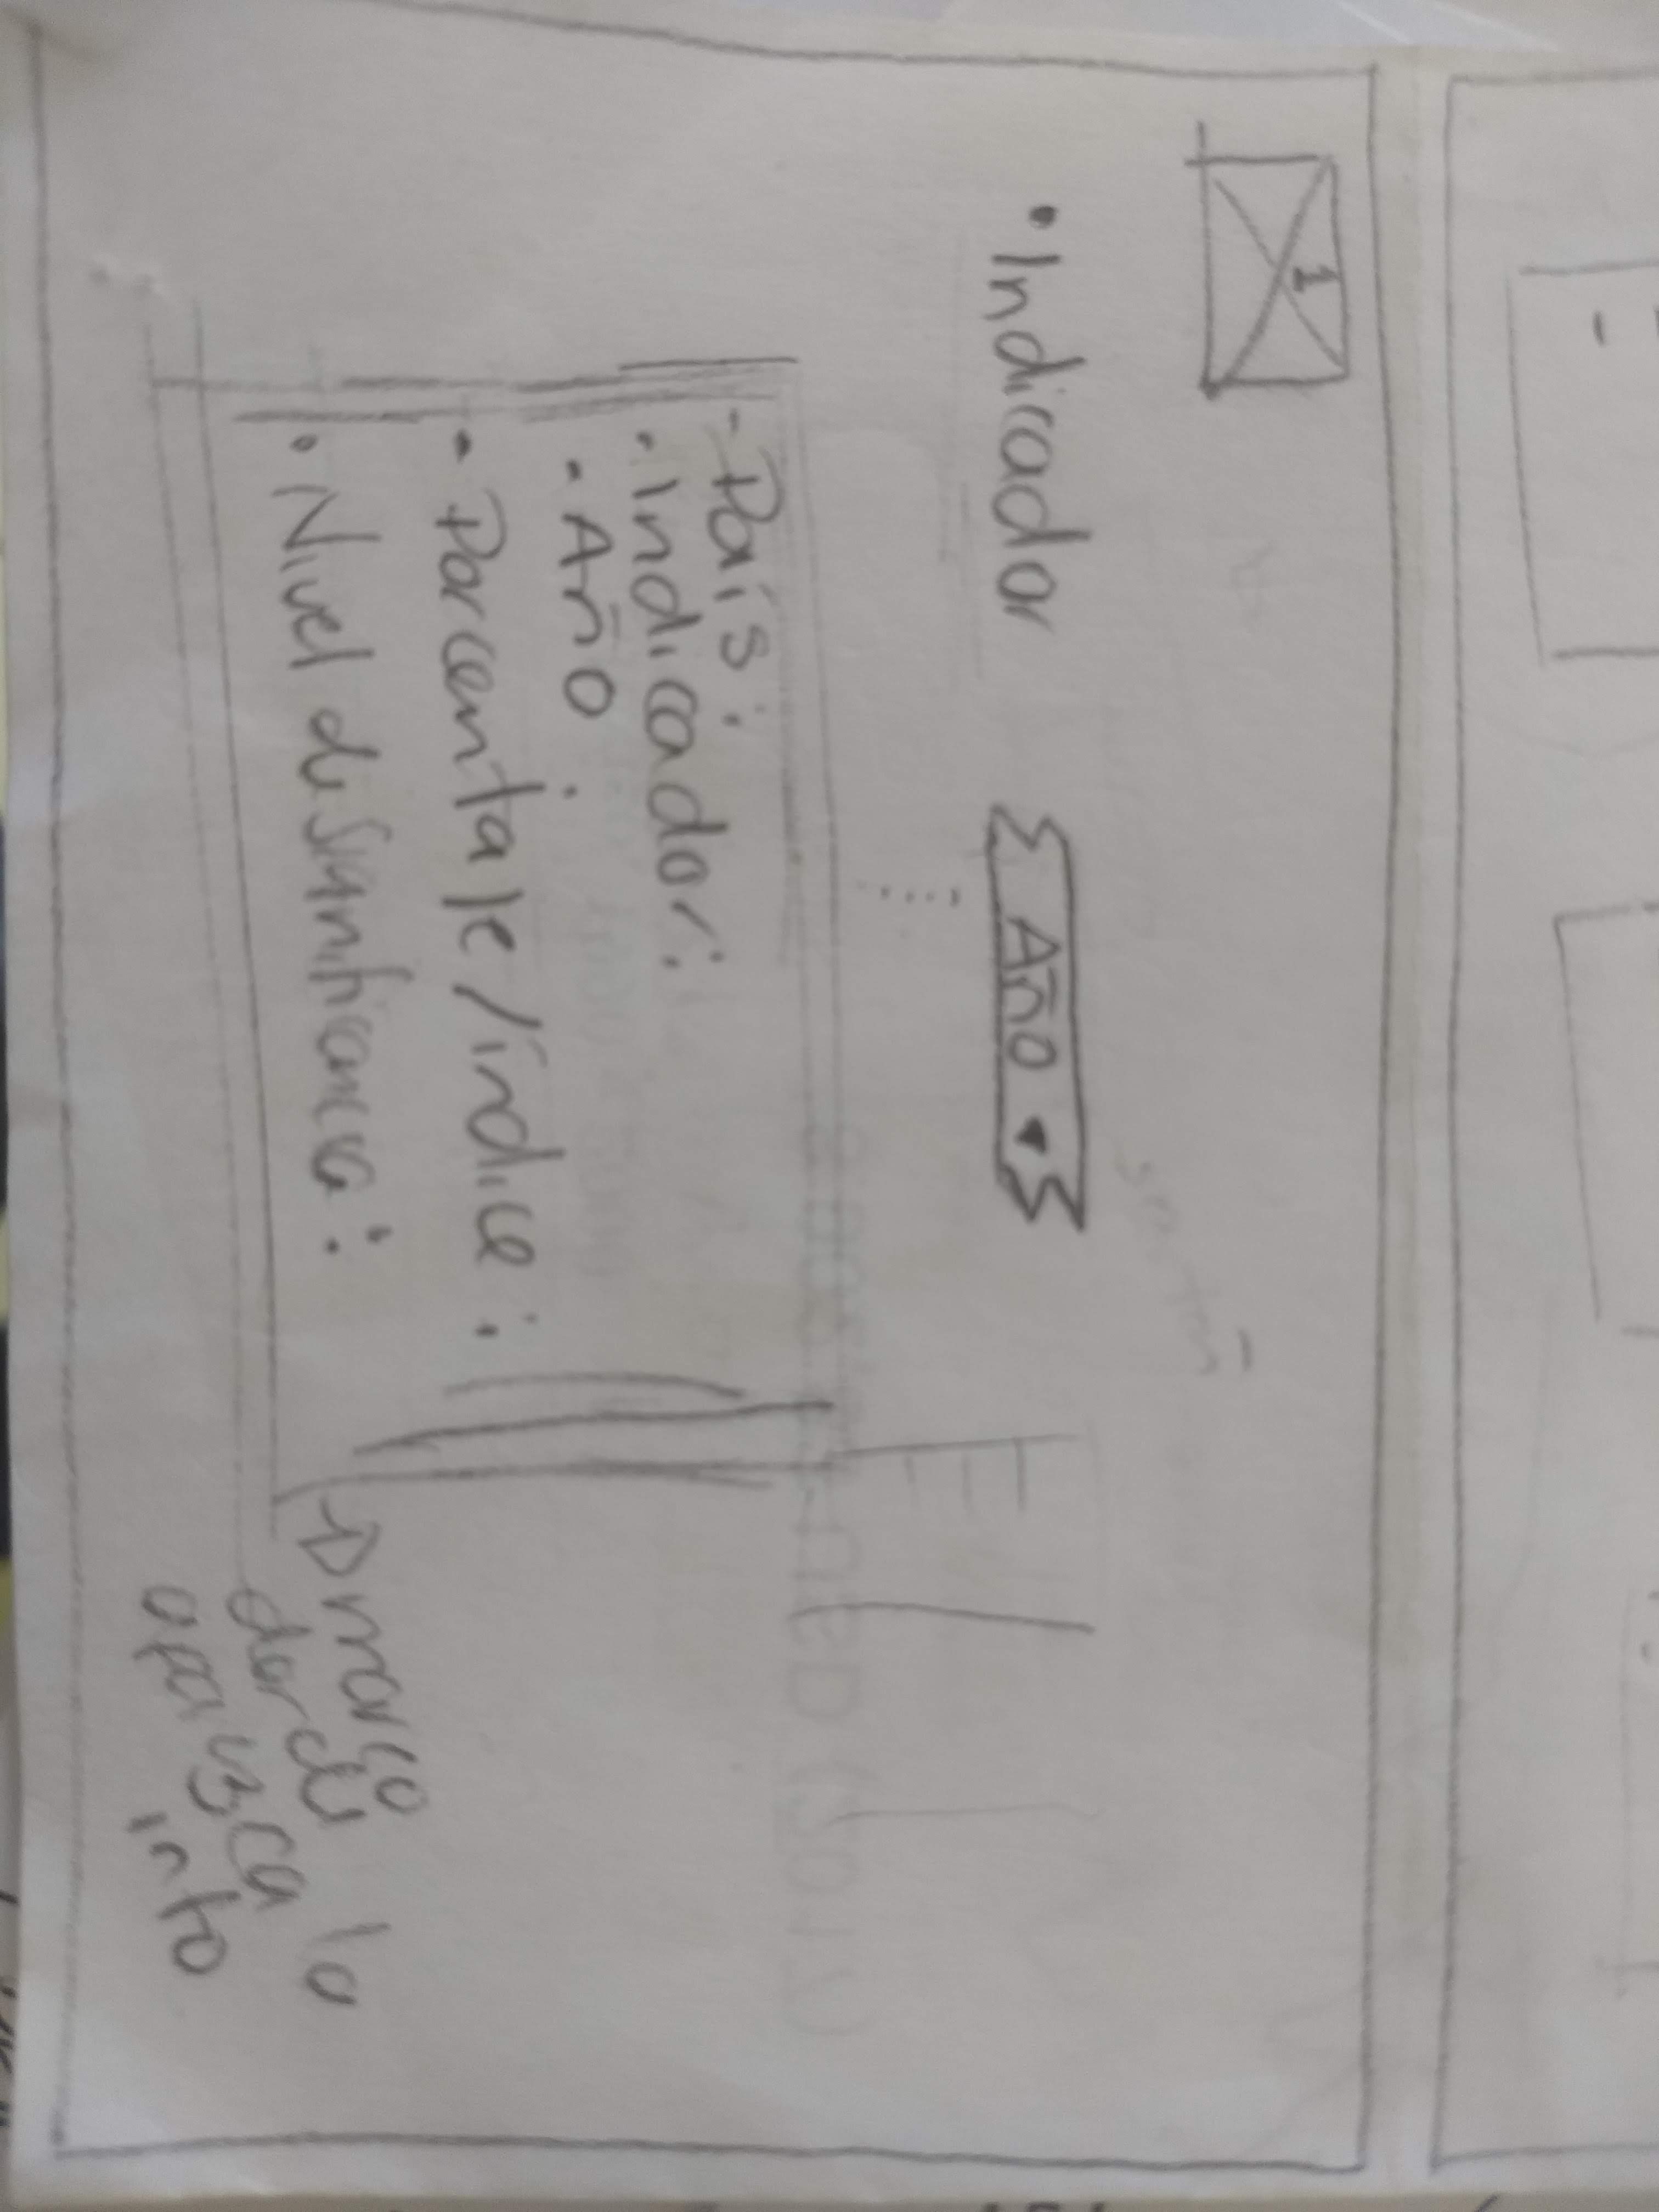 1
• Indicador
Año ▾
- País:
• Indicador:
- Año :
- Porcentaje/índice :
• Nivel de significancia :
marco
donde
aparezca la
info